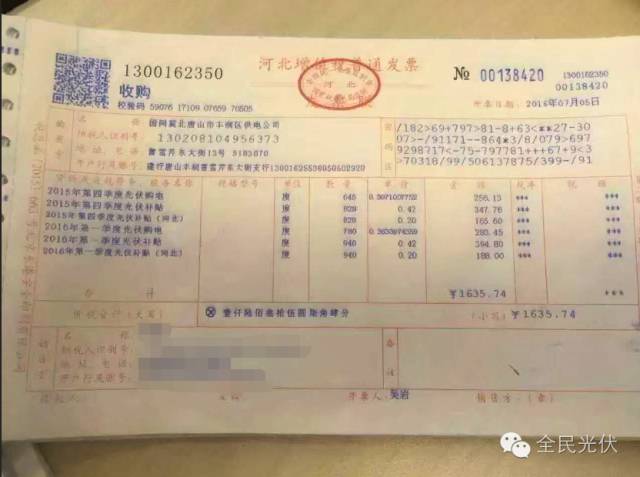 1300162350
河北增值税普通发票
№ 00138420
1300162350
00138420
收购
校验码 59076 17109 07659 70505
河北
开票日期：2016年07月05日
名 称：国网冀北唐山市丰润区供电公司
纳税人识别号：130208104956373
地址、电话：曹雪芹东大街13号 5183870
开户行及账号：建行唐山丰润曹雪芹东大街支行13001625536050502920
/182>69+797>81-8+63<**27-30
07>-/91171--864*3/8/079>697
9298717<-75-797781+++67+9<3
>70318/99/506137875/399-/91
货物或应税劳务、服务名称 规格型号 单位 数量 单价 金额 税率 税额
2015年第四季度光伏购电 度 645 256.13 *** ***
2015年第四季度光伏补贴 度 828 0.42 347.76 *** ***
2015年第四季度光伏补贴（河北） 度 828 0.20 165.60 *** ***
2016年第一季度光伏购电 度 780 283.45 *** ***
2016年第一季度光伏补贴 度 940 0.42 394.80 *** ***
2016年第一季度光伏补贴（河北） 度 940 0.20 188.00 *** ***
合 计 ￥1635.74 ***
价税合计（大写） ⊗ 壹仟陆佰叁拾伍圆柒角肆分 （小写）￥1635.74
纳税人识别号：
地址、电话：
开户行及账号：
收款人：
开票人：吴岩
销售方：（章）
全民光伏